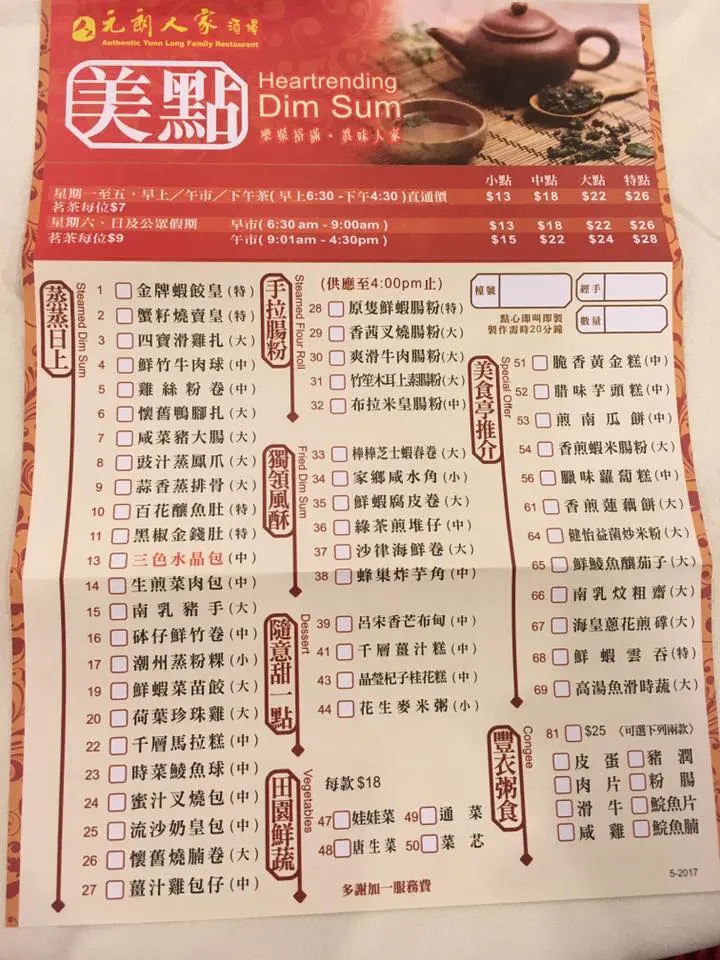 元朗人家 酒場
Authentic Yuen Long Family Restaurant
美點
Heartrending
Dim Sum
小點 中點 大點 特點
星期一至五．早上／午市／下午茶( 早上6:30 -下午4:30 )直通價 $13 $18 $22 $26
茗茶每位$7
星期六、日及公眾假期 早市( 6:30 am - 9:00am ) $13 $18 $22 $26
茗茶每位$9 午市( 9:01am - 4:30pm ) $15 $22 $24 $28
蒸蒸日上
Steamed Dim Sum
1 金牌蝦餃皇(特)
2 蟹籽燒賣皇(特)
3 四寶滑雞扎(大)
4 鮮竹牛肉球(中)
5 雞絲粉卷(中)
6 懷舊鴨腳扎(大)
7 咸菜豬大腸(大)
8 豉汁蒸鳳爪(大)
9 蒜香蒸排骨(大)
10 百花釀魚肚(特)
11 黑椒金錢肚(特)
13 三色水晶包(中)
14 生煎菜肉包(中)
15 南乳豬手(大)
16 砵仔鮮竹卷(中)
17 潮州蒸粉粿(小)
19 鮮蝦菜苗餃(大)
20 荷葉珍珠雞(大)
22 千層馬拉糕(中)
23 時菜鯪魚球(中)
24 蜜汁叉燒包(中)
25 流沙奶皇包(中)
26 懷舊燒腩卷(大)
27 薑汁雞包仔(中)
手拉腸粉
Steamed Flour Roll
(供應至4:00pm止)
28 原隻鮮蝦腸粉(特)
29 香茜叉燒腸粉(大)
30 爽滑牛肉腸粉(大)
31 竹笙木耳上素腸粉(大)
32 布拉米皇腸粉(中)
獨領風酥
Fried Dim Sum
33 棒棒芝士蝦春卷(大)
34 家鄉咸水角(小)
35 鮮蝦腐皮卷(大)
36 綠茶煎堆仔(中)
37 沙律海鮮卷(大)
38 蜂巢炸芋角(中)
隨意甜一點
Dessert
39 呂宋香芒布甸(中)
41 千層薑汁糕(中)
43 晶瑩杞子桂花糕(中)
44 花生麥米粥(小)
田園鮮蔬
Vegetables
每款$18
47 娃娃菜 49 通菜
48 唐生菜 50 菜芯
多謝加一服務費
檯號
經手
數量
點心即叫即製
製作需時20分鐘
美食亭推介
Special Offer
51 脆香黃金糕(中)
52 腊味芋頭糕(中)
53 煎南瓜餅(中)
54 香煎蝦米腸粉(大)
56 臘味蘿蔔糕(中)
61 香煎蓮藕餅(大)
64 健怡益菌炒米粉(大)
65 鮮鯪魚釀茄子(大)
66 南乳炆粗齋(大)
67 海皇蔥花煎磚(大)
68 鮮蝦雲吞(特)
69 高湯魚滑時蔬(大)
豐衣粥食
Congee
81 $25 〈可選下列兩款〉
皮蛋 豬潤
肉片 粉腸
滑牛 鯇魚片
咸雞 鯇魚腩
5-2017